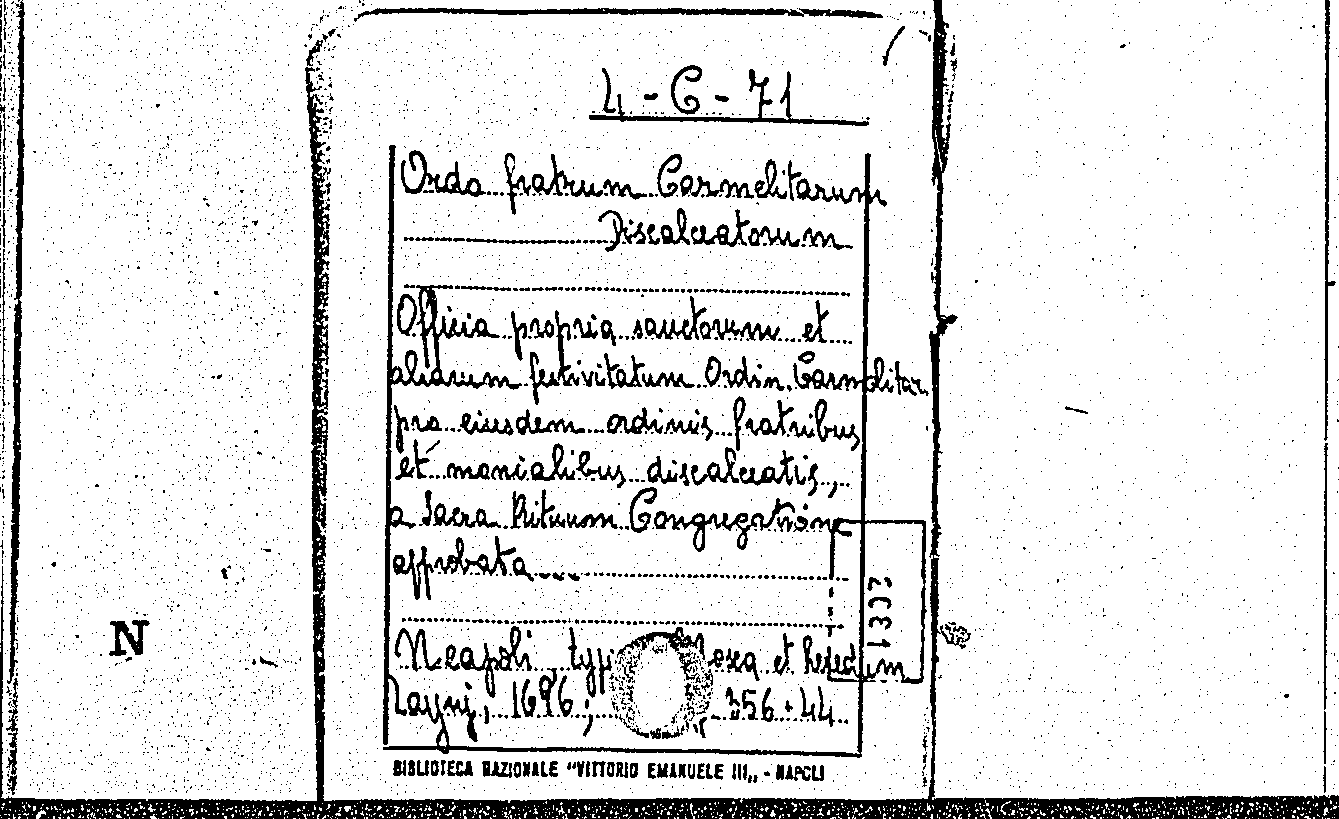 4-C-71
Ordo fratrum Carmelitarum
Discalceatorum
Officia propria sanctorum et
aliarum festivitatum Ordin. Carmelitar.
pro eiusdem ordinis fratribus
et monialibus discalceatis,
a Sacra Rituum Congregatione
approbata...
Neapoli, typ et heredum
Layni, 1696; 356+44
BIBLIOTECA NAZIONALE "VITTORIO EMANUELE III„ - NAPOLI
N